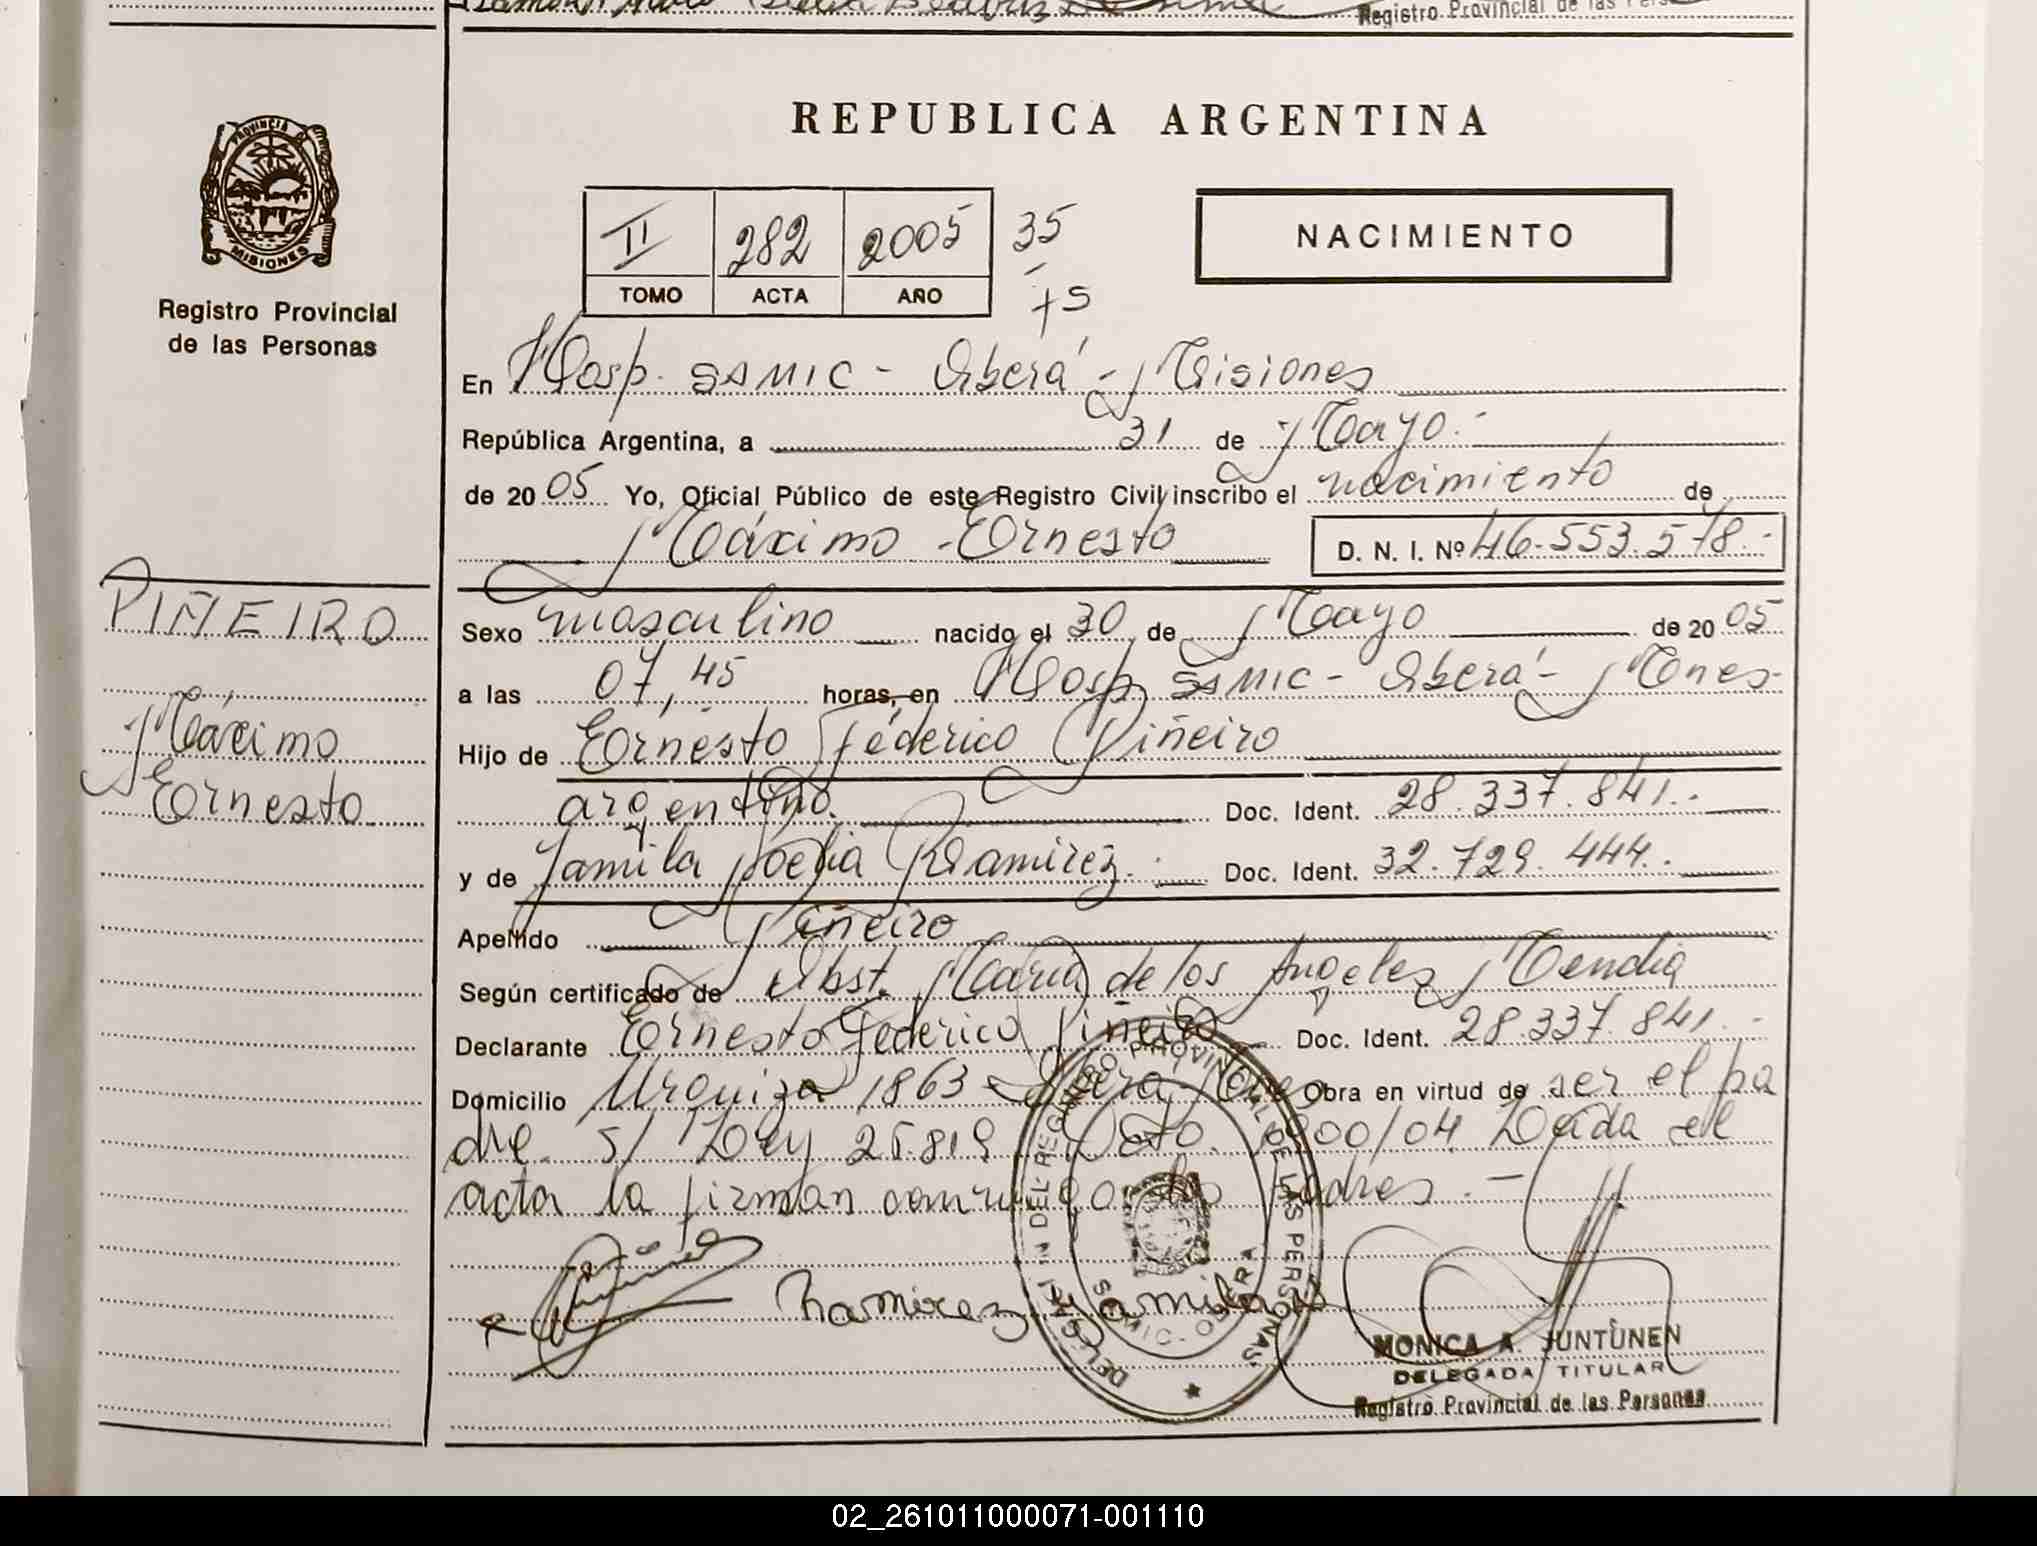 Registro Provincial de las Pers
REPUBLICA ARGENTINA
PROVINCIA
MISIONES
Registro Provincial
de las Personas
II 282 2005 35
TOMO ACTA AÑO +5
NACIMIENTO
En Hosp. SAMIC - Oberá - Misiones
República Argentina, a 31 de Mayo.-
de 2005 Yo, Oficial Público de este Registro Civil inscribo el nacimiento de
Máximo Ernesto D. N. I. Nº 46.553.578.-
PIÑEIRO
Máximo
Ernesto
Sexo masculino nacido el 30 de Mayo de 2005
a las 07,45 horas, en Hosp SAMIC - Oberá - Mones-
Hijo de Ernesto Federico Piñeiro
argentino. Doc. Ident. 28.337.841.-
y de Yamila Noelia Ramirez. Doc. Ident. 32.729.444.-
Apellido Piñeiro
Según certificado de Obst. María de los Angeles Mendia
Declarante Ernesto Federico Piñeiro Doc. Ident. 28.337.841.-
Domicilio Urquiza 1863 - Oberá Mones Obra en virtud de ser el pa
dre. s/ Ley 25.819 Dcto. 1900/04 Leída el
acta la firman conmigo los padres.-
Ramirez Yamila
DELEGACION DEL REGISTRO PROVINCIAL DE LAS PERSONAS
SAMIC - OBERA
MONICA A. JUNTUNEN
DELEGADA TITULAR
Registro Provincial de las Personas
02_261011000071-001110